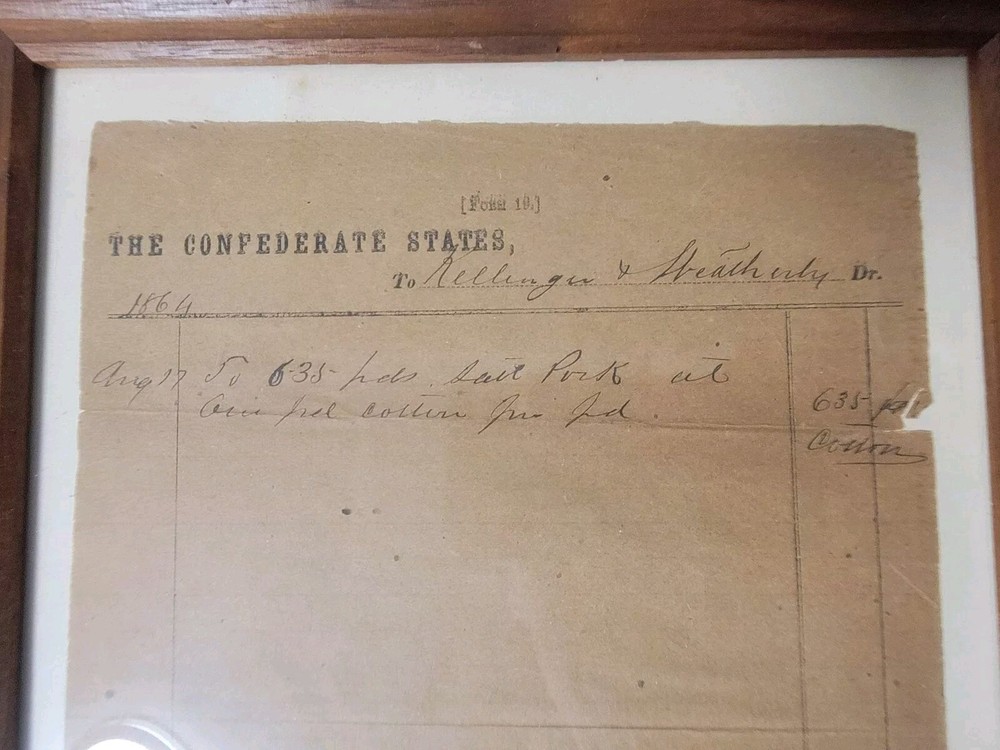 [Form 10.]
THE CONFEDERATE STATES,
To Kellinger & Weatherly Dr.
1864
Aug 17 To 635 pds salt Pork at
One pd cotton per pd.
635 pds
Cotton